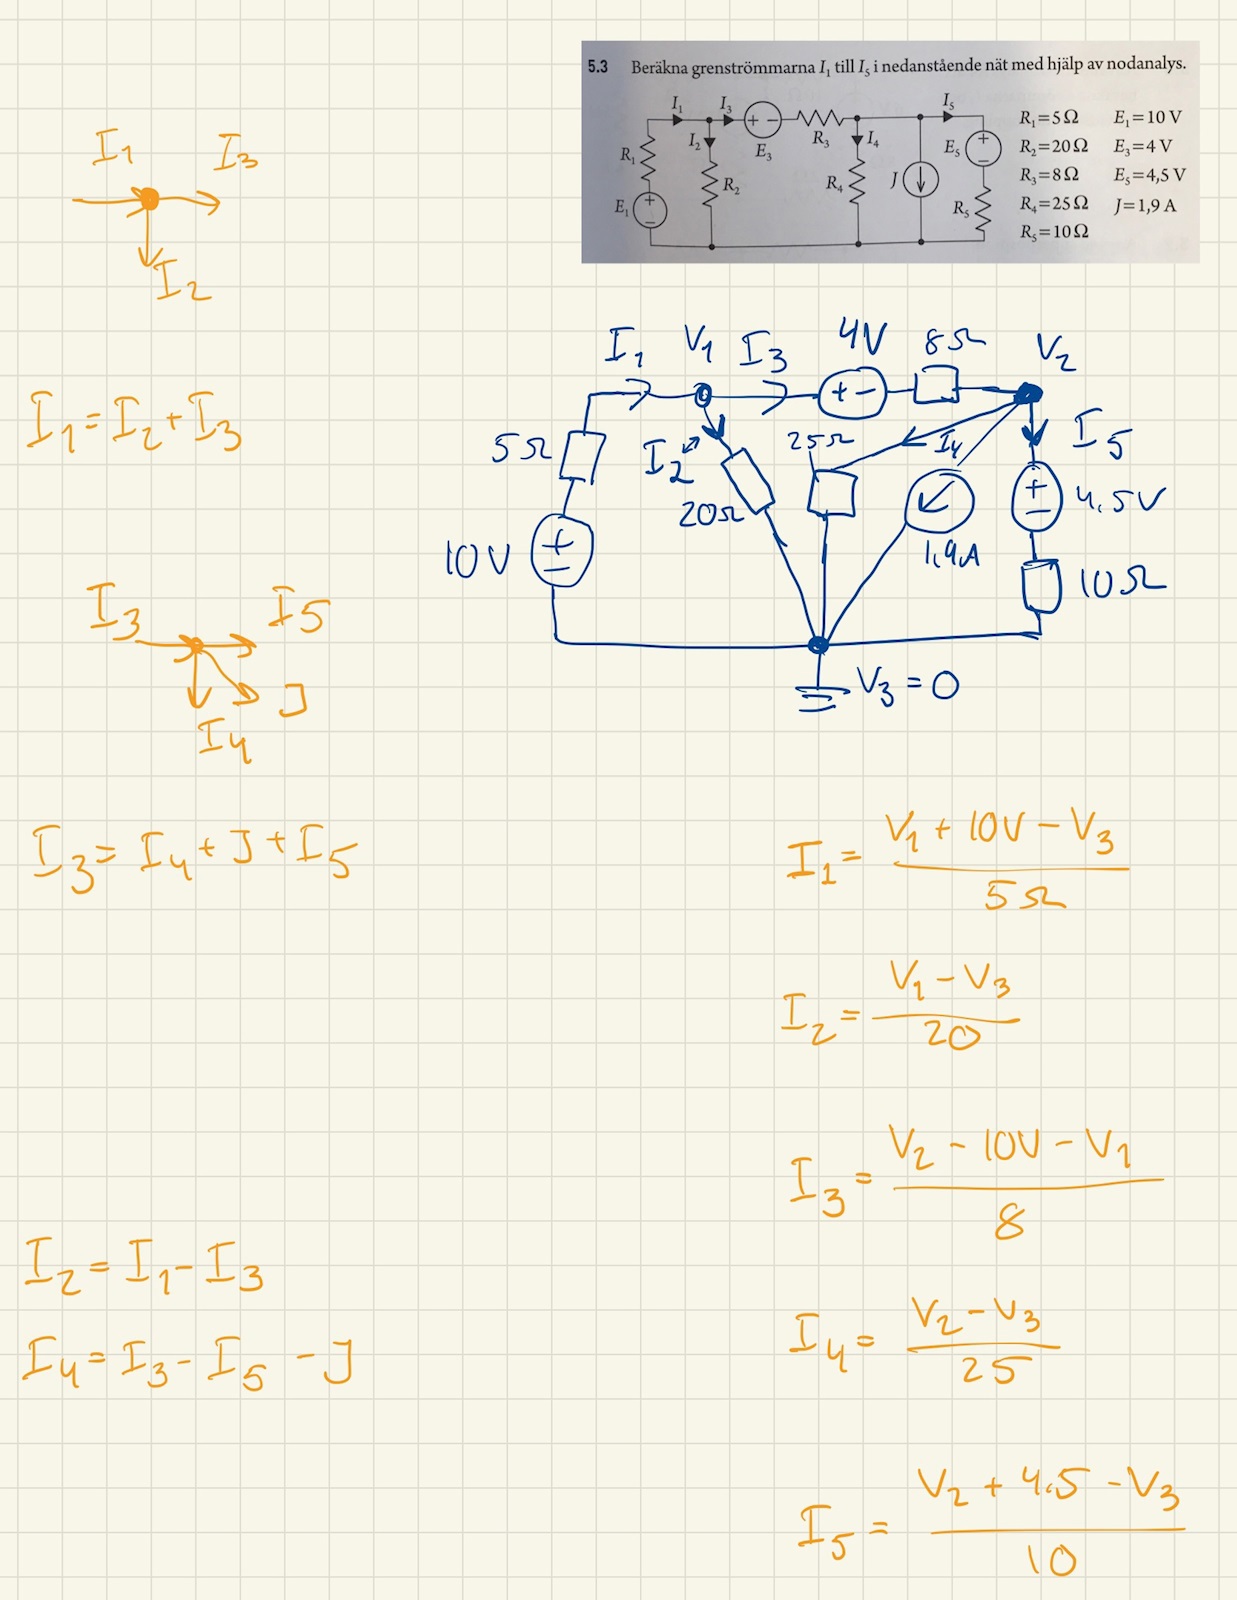 5.3 Beräkna grenströmmarna I₁ till I₅ i nedanstående nät med hjälp av nodanalys.
I₁ I₃ I₅
I₂ E₃ R₃ I₄ E₅
R₁ R₂ R₄ J R₅
E₁
R₁=5Ω E₁=10 V
R₂=20Ω E₃=4 V
R₃=8Ω E₅=4,5 V
R₄=25Ω J=1,9 A
R₅=10Ω
I₁ I₃
I₂
I₁ = I₂ + I₃
I₁ V₁ I₃ 4V 8Ω V₂
5Ω I₂ 25Ω I₄ I₅
20Ω 4.5V
10V 1,9A 10Ω
V₃ = 0
I₃ I5
J
I₄
I₃ = I₄ + J + I₅
I₂ = I₁ - I₃
I₄ = I₃ - I₅ - J
I₁ = V₁ + 10V - V₃
5Ω
I₂ = V₁ - V₃
20
I₃ = V₂ - 10V - V₁
8
I₄ = V₂ - V₃
25
I₅ = V₂ + 4.5 - V₃
10